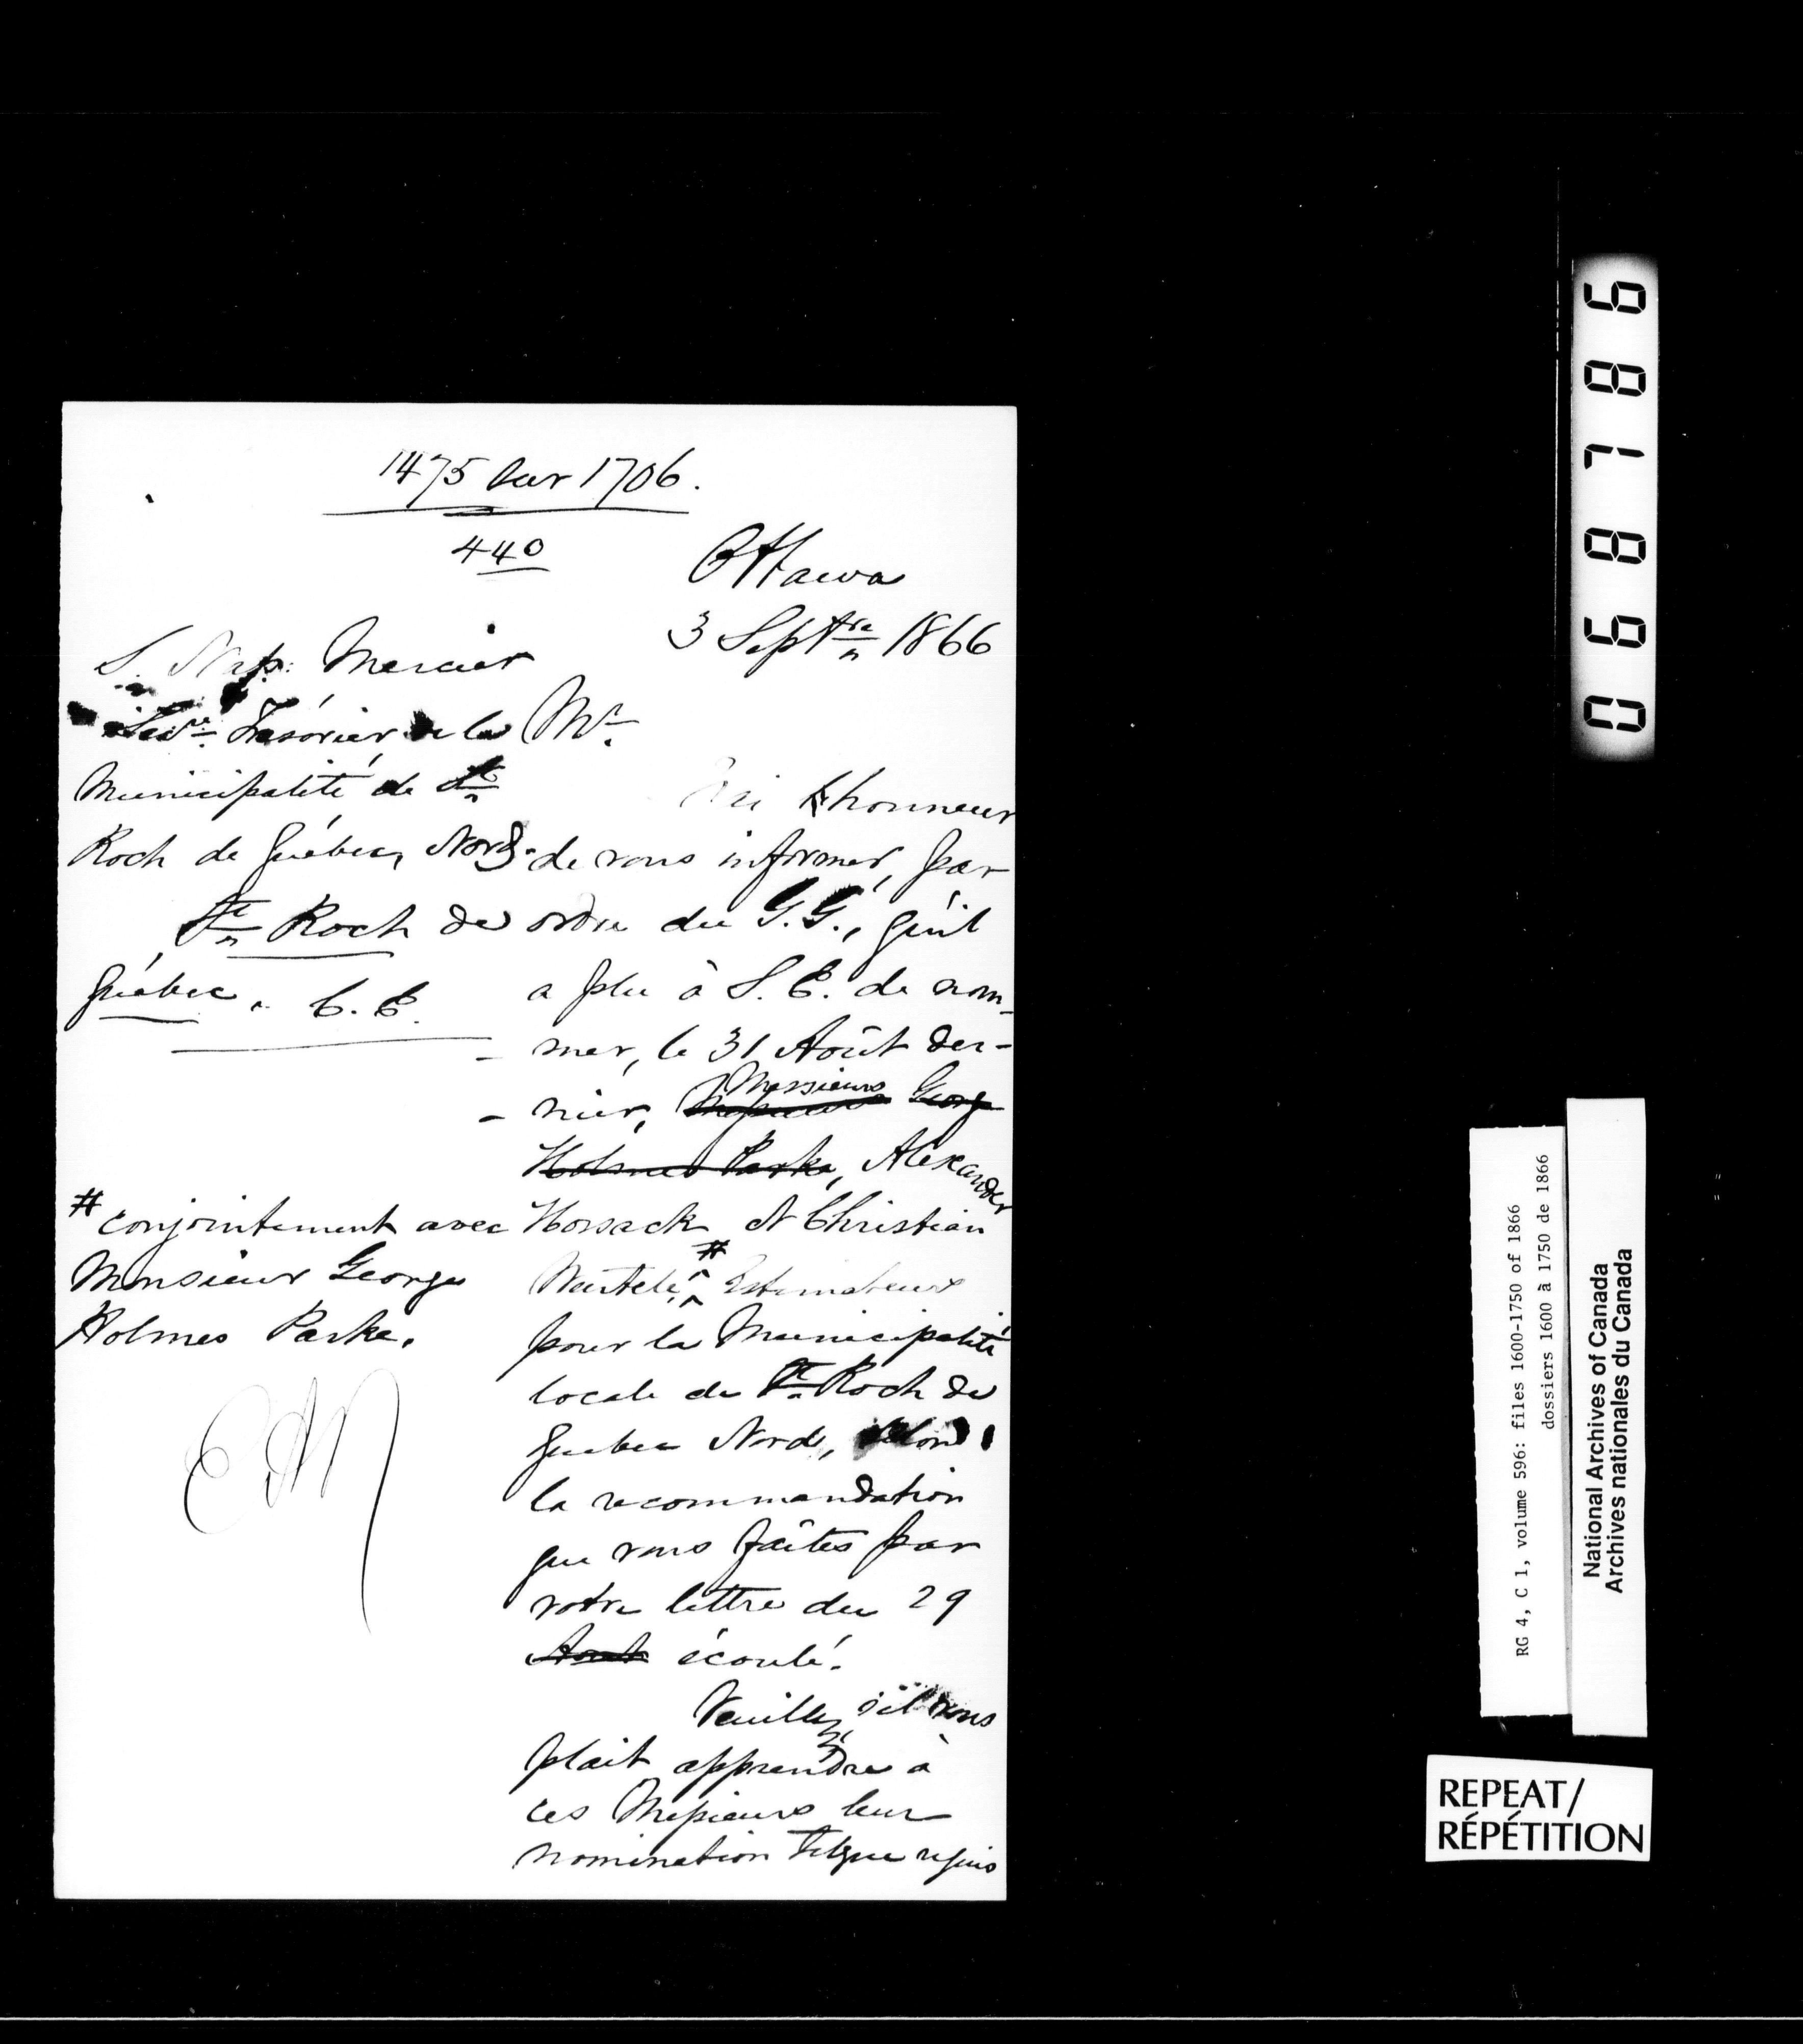 1475 sur 1706.
440
Ottawa
3 Septre 1866
S. Nap: Mercier
Secre Trésorier de la
Municipalité de St
Roch de Québec, Nord.
St Roch de
Québec. C. E.
Mr.
J'ai l'honneur
de vous informer, par
ordre du G. G., qu'il
a plu à S. E. de nom-
- mer, le 31 Août der-
- nier, Messieurs George
Holmes Parke, Alexander
Hossack et Christian
Wurtele, # Estimateurs
pour la Municipalité
locale de St Roch de
Quebec Nord, selon
la recommandation
que vous faîtes par
votre lettre du 29
Août écoulé.
Veuillez, s'il vous
plait apprendre à
ces Messieurs leur
nomination telque requis
# conjointement avec
Monsieur George
Holmes Parke.
EM
068786
RG 4, C 1, volume 596: files 1600-1750 of 1866
dossiers 1600 à 1750 de 1866
National Archives of Canada
Archives nationales du Canada
REPEAT/
RÉPÉTITION